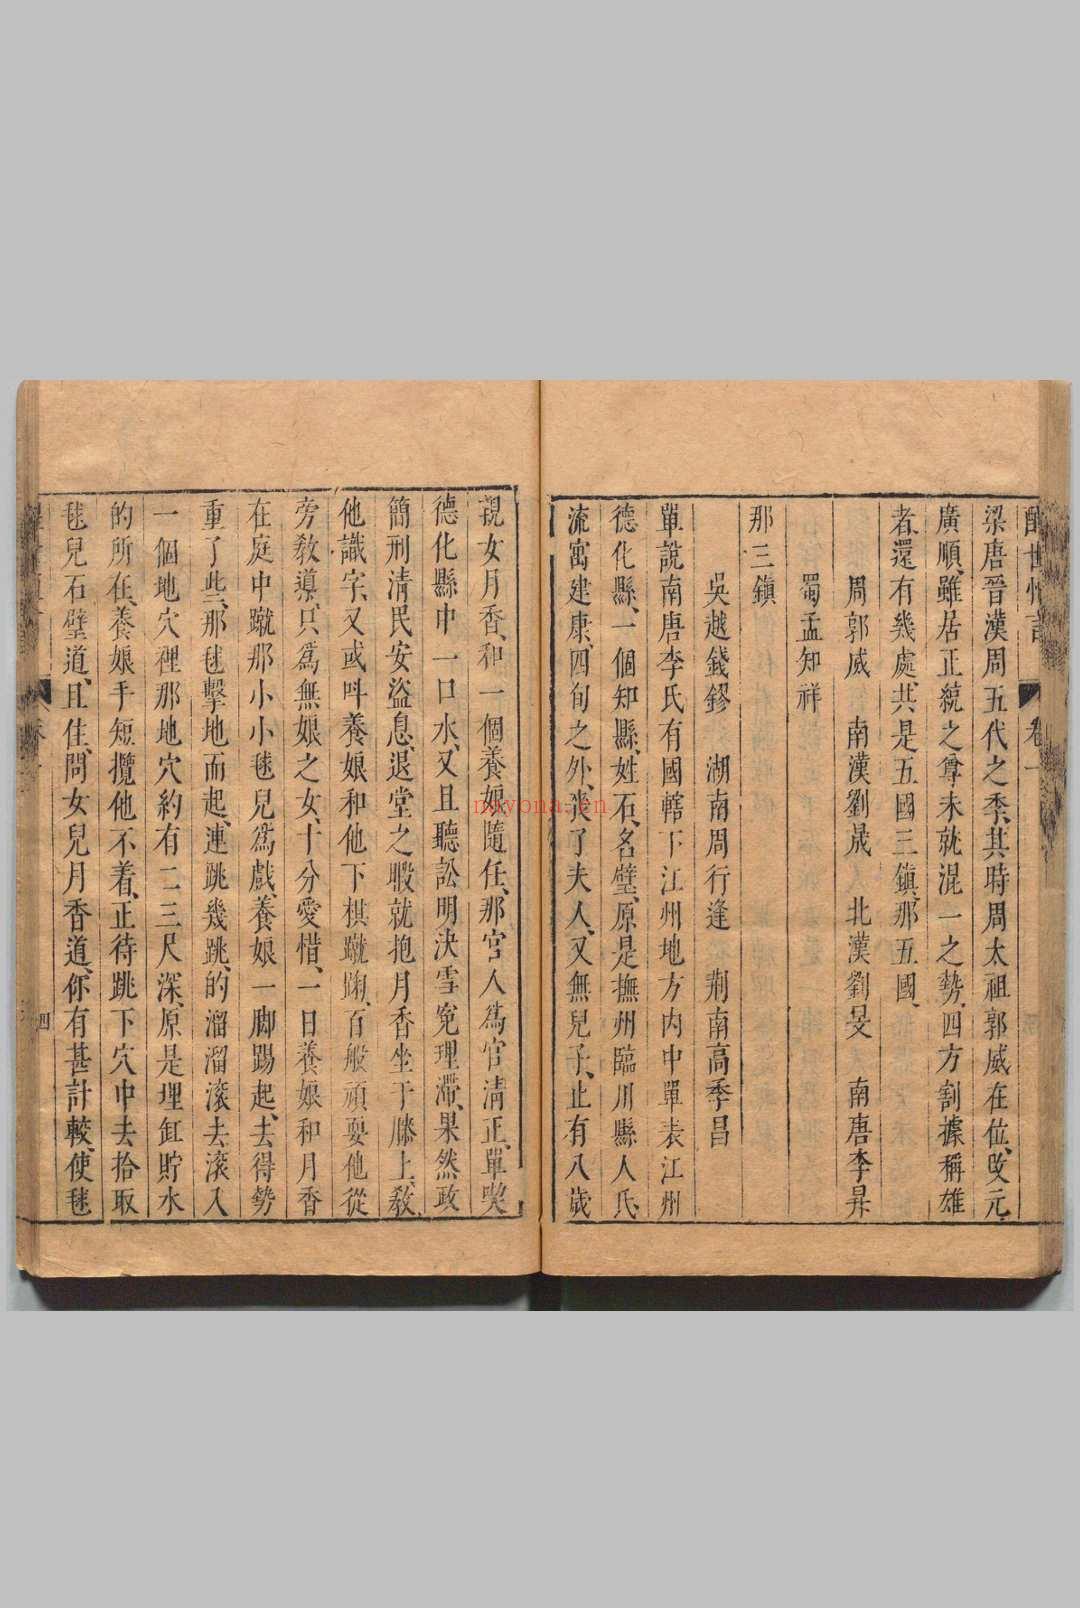 醒世恒言 卷一
梁唐晉漢周五代之季、其時周太祖郭威在位、改元
廣順、雖居正統之尊、未就混一之勢、四方割據稱雄
者、還有幾處、共是五國三鎮、那五國、
周郭威 南漢劉晟 北漢劉旻 南唐李昪
蜀孟知祥
那三鎮
吳越錢鏐 湖南周行逢 荆南高季昌
單說南唐李氏有國、轄下江州地方、內中單表江州
德化縣、一個知縣、姓石、名璧、原是撫州臨川縣人氏、
流寓建康、四旬之外、丧了夫人、又無兒子、止有八歲
親女月香、和一個養娘隨任、那官人爲官清正、單喫
德化縣中一口水、又且聽訟明決、雪冤理滯、果然政
簡刑清、民安盜息、退堂之暇、就抱月香坐于膝上、教
他識字、又或呌養娘和他下棋蹴踘、百般頑耍、他從
旁教導、只爲無娘之女、十分愛惜、一日養娘和月香
在庭中蹴那小小毬兒爲戲、養娘一脚踢起、去得勢
重了些、那毬擊地而起、連跳幾跳、的溜溜滚去、滚入
一個地穴裡、那地穴約有二三尺深、原是埋缸貯水
的所在、養娘手短攬他不着、正待跳下穴中去拾取
毬兒、石璧道、且住、問女兒月香道、你有甚計較、使毬
卷一
四
nayona.cn